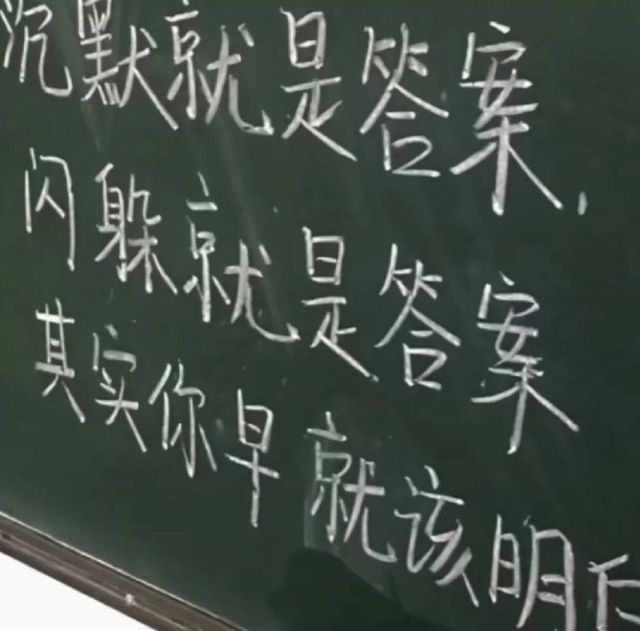 沉默就是答案，
闪躲就是答案
其实你早就该明白